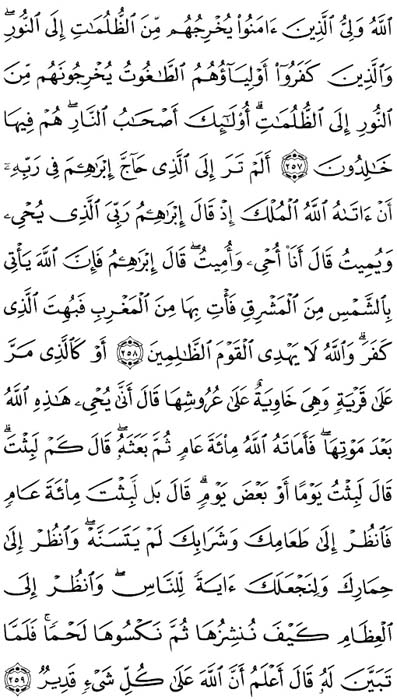 ٱللَّهُ وَلِيُّ ٱلَّذِينَ ءَامَنُوا۟ يُخْرِجُهُم مِّنَ ٱلظُّلُمَٰتِ إِلَى ٱلنُّورِ ۖ
وَٱلَّذِينَ كَفَرُوٓا۟ أَوْلِيَآؤُهُمُ ٱلطَّٰغُوتُ يُخْرِجُونَهُم مِّنَ
ٱلنُّورِ إِلَى ٱلظُّلُمَٰتِ ۗ أُو۟لَٰٓئِكَ أَصْحَٰبُ ٱلنَّارِ ۖ هُمْ فِيهَا
خَٰلِدُونَ ٢٥٧ أَلَمْ تَرَ إِلَى ٱلَّذِى حَآجَّ إِبْرَٰهِـۧمَ فِى رَبِّهِۦٓ
أَنْ ءَاتَىٰهُ ٱللَّهُ ٱلْمُلْكَ إِذْ قَالَ إِبْرَٰهِـۧمُ رَبِّىَ ٱلَّذِى يُحْىِۦ
وَيُمِيتُ قَالَ أَنَا۠ أُحْىِۦ وَأُمِيتُ ۖ قَالَ إِبْرَٰهِـۧمُ فَإِنَّ ٱللَّهَ يَأْتِى
بِٱلشَّمْسِ مِنَ ٱلْمَشْرِقِ فَأْتِ بِهَا مِنَ ٱلْمَغْرِبِ فَبُهِتَ ٱلَّذِى
كَفَرَ ۗ وَٱللَّهُ لَا يَهْدِى ٱلْقَوْمَ ٱلظَّٰلِمِينَ ٢٥٨ أَوْ كَٱلَّذِى مَرَّ
عَلَىٰ قَرْيَةٍ وَهِىَ خَاوِيَةٌ عَلَىٰ عُرُوشِهَا قَالَ أَنَّىٰ يُحْىِۦ هَٰذِهِ ٱللَّهُ
بَعْدَ مَوْتِهَا ۖ فَأَمَاتَهُ ٱللَّهُ مِا۟ئَةَ عَامٍ ثُمَّ بَعَثَهُۥ ۖ قَالَ كَمْ لَبِثْتَ ۖ
قَالَ لَبِثْتُ يَوْمًا أَوْ بَعْضَ يَوْمٍ ۖ قَالَ بَل لَّبِثْتَ مِا۟ئَةَ عَامٍ
فَٱنظُرْ إِلَىٰ طَعَامِكَ وَشَرَابِكَ لَمْ يَتَسَنَّهْ ۖ وَٱنظُرْ إِلَىٰ
حِمَارِكَ وَلِنَجْعَلَكَ ءَايَةً لِّلنَّاسِ ۖ وَٱنظُرْ إِلَى
ٱلْعِظَامِ كَيْفَ نُنشِزُهَا ثُمَّ نَكْسُوهَا لَحْمًا ۚ فَلَمَّا
تَبَيَّنَ لَهُۥ قَالَ أَعْلَمُ أَنَّ ٱللَّهَ عَلَىٰ كُلِّ شَىْءٍ قَدِيرٌ ٢٥٩